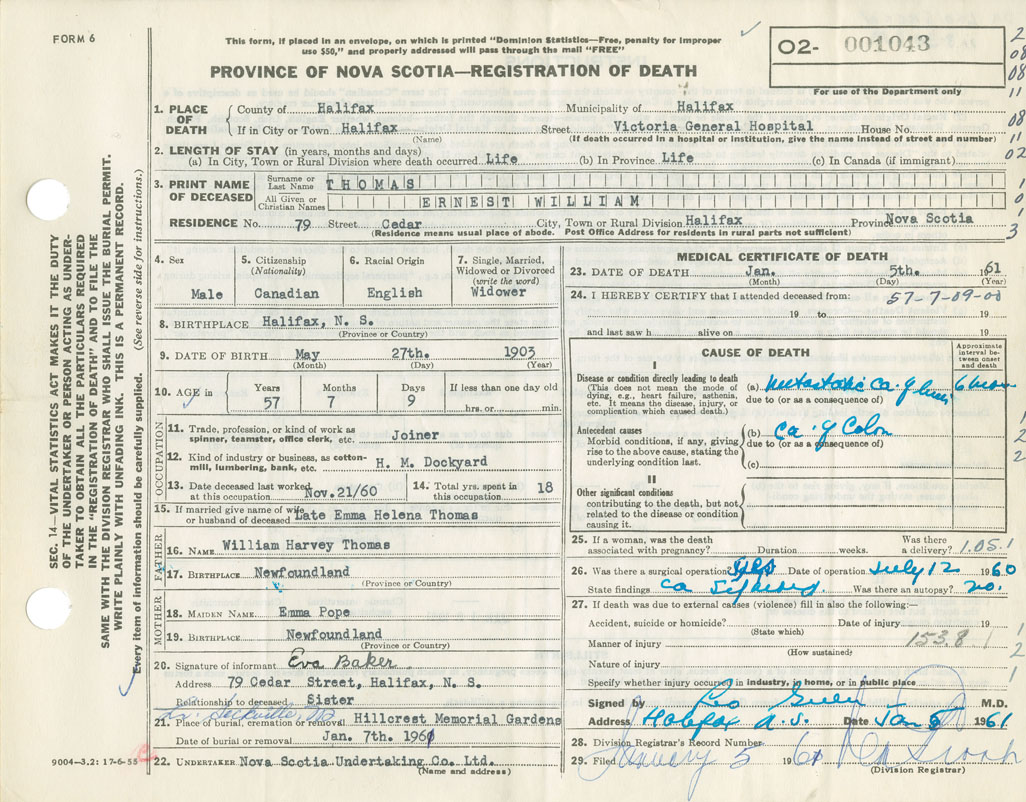 FORM 6
This form, if placed in an envelope, on which is printed "Dominion Statistics—Free, penalty for improper
use $50," and properly addressed will pass through the mail "FREE"
PROVINCE OF NOVA SCOTIA—REGISTRATION OF DEATH
O2- 001043
For use of the Department only
2
08
08
11
08
11
02
1
0
1
3
1. PLACE OF DEATH
County of Halifax Municipality of Halifax
If in City or Town Halifax Street Victoria General Hospital House No.
(Name) (If death occurred in a hospital or institution, give the name instead of street and number)
2. LENGTH OF STAY (in years, months and days)
(a) In City, Town or Rural Division where death occurred Life (b) In Province Life (c) In Canada (if immigrant)
3. PRINT NAME OF DECEASED
Surname or Last Name THOMAS
All Given or Christian Names ERNEST WILLIAM
RESIDENCE No. 79 Street Cedar City, Town or Rural Division Halifax Province Nova Scotia
(Residence means usual place of abode. Post Office Address for residents in rural parts not sufficient)
4. Sex
Male
5. Citizenship
(Nationality)
Canadian
6. Racial Origin
English
7. Single, Married,
Widowed or Divorced
(write the word)
Widower
8. BIRTHPLACE Halifax, N. S.
(Province or Country)
9. DATE OF BIRTH May 27th. 1903
(Month) (Day) (Year)
10. AGE in
Years Months Days If less than one day old
57 7 9 hrs. or min.
OCCUPATION
11. Trade, profession, or kind of work as
spinner, teamster, office clerk, etc. Joiner
12. Kind of industry or business, as cotton-
mill, lumbering, bank, etc. H. M. Dockyard
13. Date deceased last worked
at this occupation Nov. 21/60
14. Total yrs. spent in
this occupation 18
15. If married give name of wife
or husband of deceased Late Emma Helena Thomas
FATHER
16. NAME William Harvey Thomas
17. BIRTHPLACE Newfoundland
(Province or Country)
MOTHER
18. MAIDEN NAME Emma Pope
19. BIRTHPLACE Newfoundland
(Province or Country)
20. Signature of informant Eva Baker
Address 79 Cedar Street, Halifax, N. S.
Relationship to deceased Sister
21. Place of burial, cremation or removal Hillcrest Memorial Gardens
Date of burial or removal Jan. 7th. 1961
22. UNDERTAKER Nova Scotia Undertaking Co. Ltd.
(Name and address)
9004—3.2: 17-6-55
MEDICAL CERTIFICATE OF DEATH
23. DATE OF DEATH Jan. 5th. 1961
(Month) (Day) (Year)
24. I HEREBY CERTIFY that I attended deceased from: 57-7-09-00
19 to 19
and last saw h alive on 19
CAUSE OF DEATH
Approximate
interval be-
tween onset
and death
I
Disease or condition directly leading to death
(This does not mean the mode of
dying, e.g., heart failure, asthenia,
etc. It means the disease, injury, or
complication which caused death.)
(a) Metastatic Ca. of 6 mos
due to (or as a consequence of)
Antecedent causes
Morbid conditions, if any, giving
rise to the above cause, stating the
underlying condition last.
(b) Ca. of Colon
due to (or as a consequence of)
(c)
1
2
2
II
Other significant conditions
contributing to the death, but not
related to the disease or condition
causing it.
25. If a woman, was the death
associated with pregnancy? Duration weeks.
Was there
a delivery? 1.05.1
26. Was there a surgical operation? Yes Date of operation July 12 1960
State findings Ca Was there an autopsy? no.
27. If death was due to external causes (violence) fill in also the following:—
Accident, suicide or homicide? Date of injury 19
(State which)
Manner of injury 153.8 1
(How sustained)
Nature of injury
Specify whether injury occurred in industry, in home, or in public place
1
2
1
Signed by Leo M.D.
Address Halifax N.S. Date Jan 5 1961
28. Division Registrar's Record Number
29. Filed January 5 1961
(Division Registrar)
SEC. 14—VITAL STATISTICS ACT MAKES IT THE DUTY
OF THE UNDERTAKER OR PERSON ACTING AS UNDER-
TAKER TO OBTAIN ALL THE PARTICULARS REQUIRED
IN THE "REGISTRATION OF DEATH" AND TO FILE THE
SAME WITH THE DIVISION REGISTRAR WHO SHALL ISSUE THE BURIAL PERMIT.
WRITE PLAINLY WITH UNFADING INK. THIS IS A PERMANENT RECORD.
Every item of information should be carefully supplied. (See reverse side for instructions.)